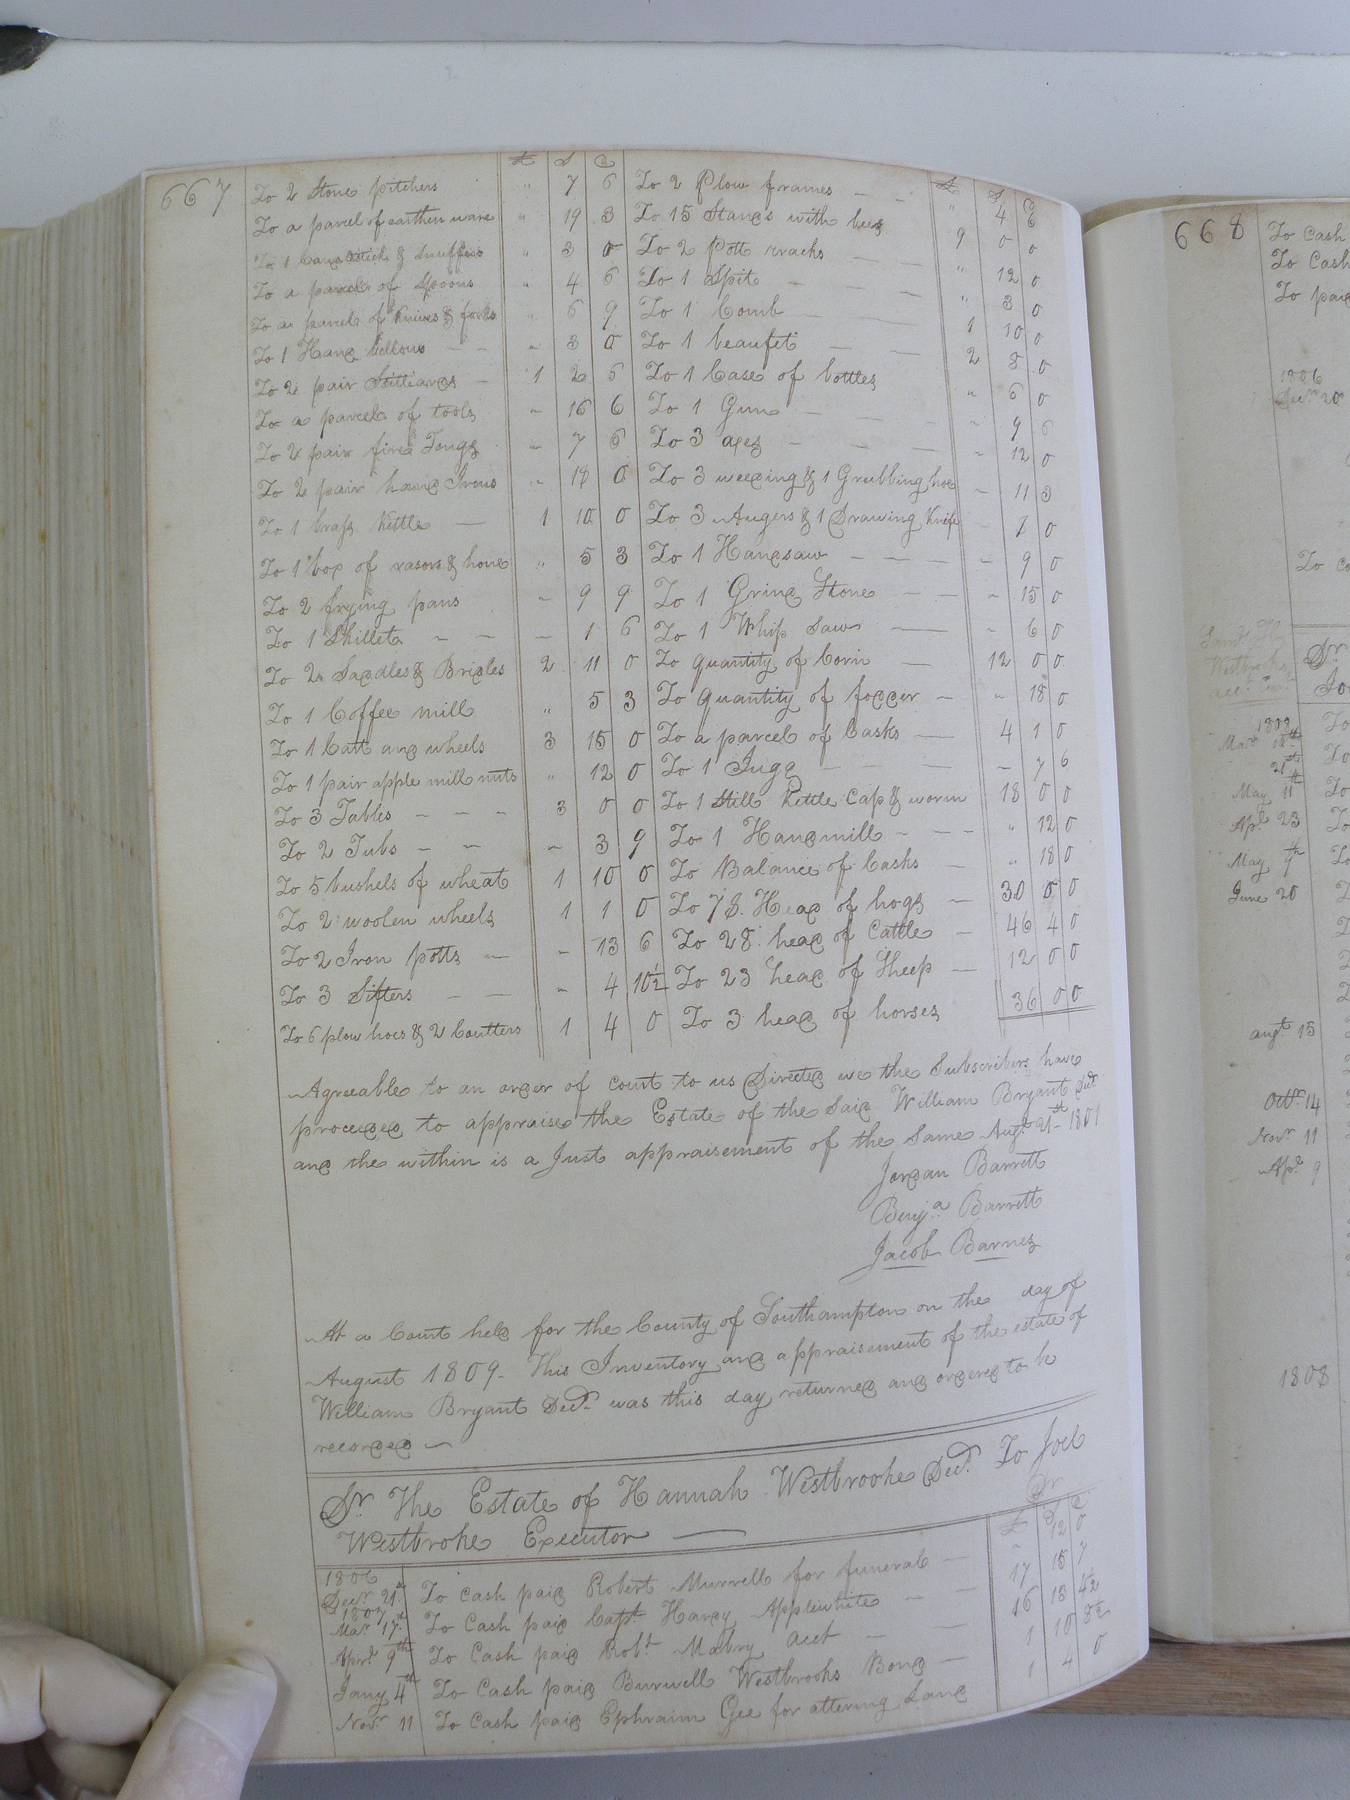 667
£ S D
To 2 Stone pitchers " 7 6
To a parcel of earthen ware " 19 3
To 1 candlestick & Snuffers " 3 0
To a parcel of Spoons " 4 6
To a parcel of Knives & forks " 6 9
To 1 Hand bellows - - " 3 0
To 2 pair Stilliards - 1 2 6
To a parcel of tools - 16 6
To 2 pair fire Tongs - 7 6
To 2 pair hand Irons - 18 0
To 1 brass Kettle - 1 10 0
To 1 box of rasors & hone " 5 3
To 2 frying pans - 9 9
To 1 Skillet - - - 1 6
To 2 Saddles & Bridles 2 11 0
To 1 Coffee mill " 5 3
To 1 Catt and wheels 3 15 0
To 1 pair apple mill nuts " 12 0
To 3 Tables - - - 3 0 0
To 2 Tubs - - - 3 9
To 5 bushels of wheat 1 10 0
To 2 woolen wheels 1 1 0
To 2 Iron potts - - 13 6
To 3 Sifters - - - 4 10½
To 6 plow hoes & 2 Coutters 1 4 0
£ S D
To 2 Plow frames - - " 4 6
To 15 Stands with bees 9 0 0
To 2 Pott racks - - " 12 0
To 1 Spit - - - " 3 0
To 1 Comb - - 1 10 0
To 1 beaufet - - 2 8 0
To 1 Case of bottles " 6 0
To 1 Gun - - - - 9 6
To 3 axes - - - - 12 0
To 3 weeding & 1 Grubbing hoe - 11 3
To 3 Augers & 1 Drawing Knife - 7 0
To 1 Handsaw - - - - 9 0
To 1 Grind Stone - - - 15 0
To 1 Whip Saw - - 6 0
To quantity of Corn - 12 0 0
To quantity of fodder - - 18 0
To a parcel of Casks - 4 1 0
To 1 Jugg - - - - 7 6
To 1 Still Kettle Cap & worm 18 0 0
To 1 Handmill - - - " 12 0
To Balance of Casks - " 18 0
To 78 Head of hogs - 30 0 0
To 28 head of Cattle - 46 4 0
To 23 head of Sheep - 12 0 0
To 3 head of horses 36 0 0
Agreeable to an order of court to us Directed we the Subscribers have
proceeded to appraise the Estate of the Said William Bryant Decd.
and the within is a Just appraisement of the Same Augt. 21st 1801
Jordan Barrett
Benja. Barrett
Jacob Barnes
At a Court held for the County of Southampton on the day of
August 1809. This Inventory and appraisement of the estate of
William Bryant Decd. was this day returned and ordered to be
recorded
Dr. The Estate of Hannah Westbrooke Decd. To Joel
Westbroke Executor Dr
£ S D
1806
Decr. 21st To cash paid Robert Murrell for funeral - - 12 0
1807
Mar. 17th To Cash paid Capt. Hardy Applewhite - 17 15 7
Aprl. 9th To Cash paid Robt. Mabry acct - - 16 13 4½
Jany 4th To Cash paid Burwell Westbrooks Bond - 1 10 8½
Novr. 11 To Cash paid Ephraim Gee for attering Land 1 4 0
668
To Cash
To Cash
To paid
1806
Decr. 20
To Ca
Westbrooks
Dr.
1802
Mar. 18th
21st
May 11th
Apl. 23
May 7th
June 20
augt 15
Octr. 14
Novr. 11
Apl. 9
1808